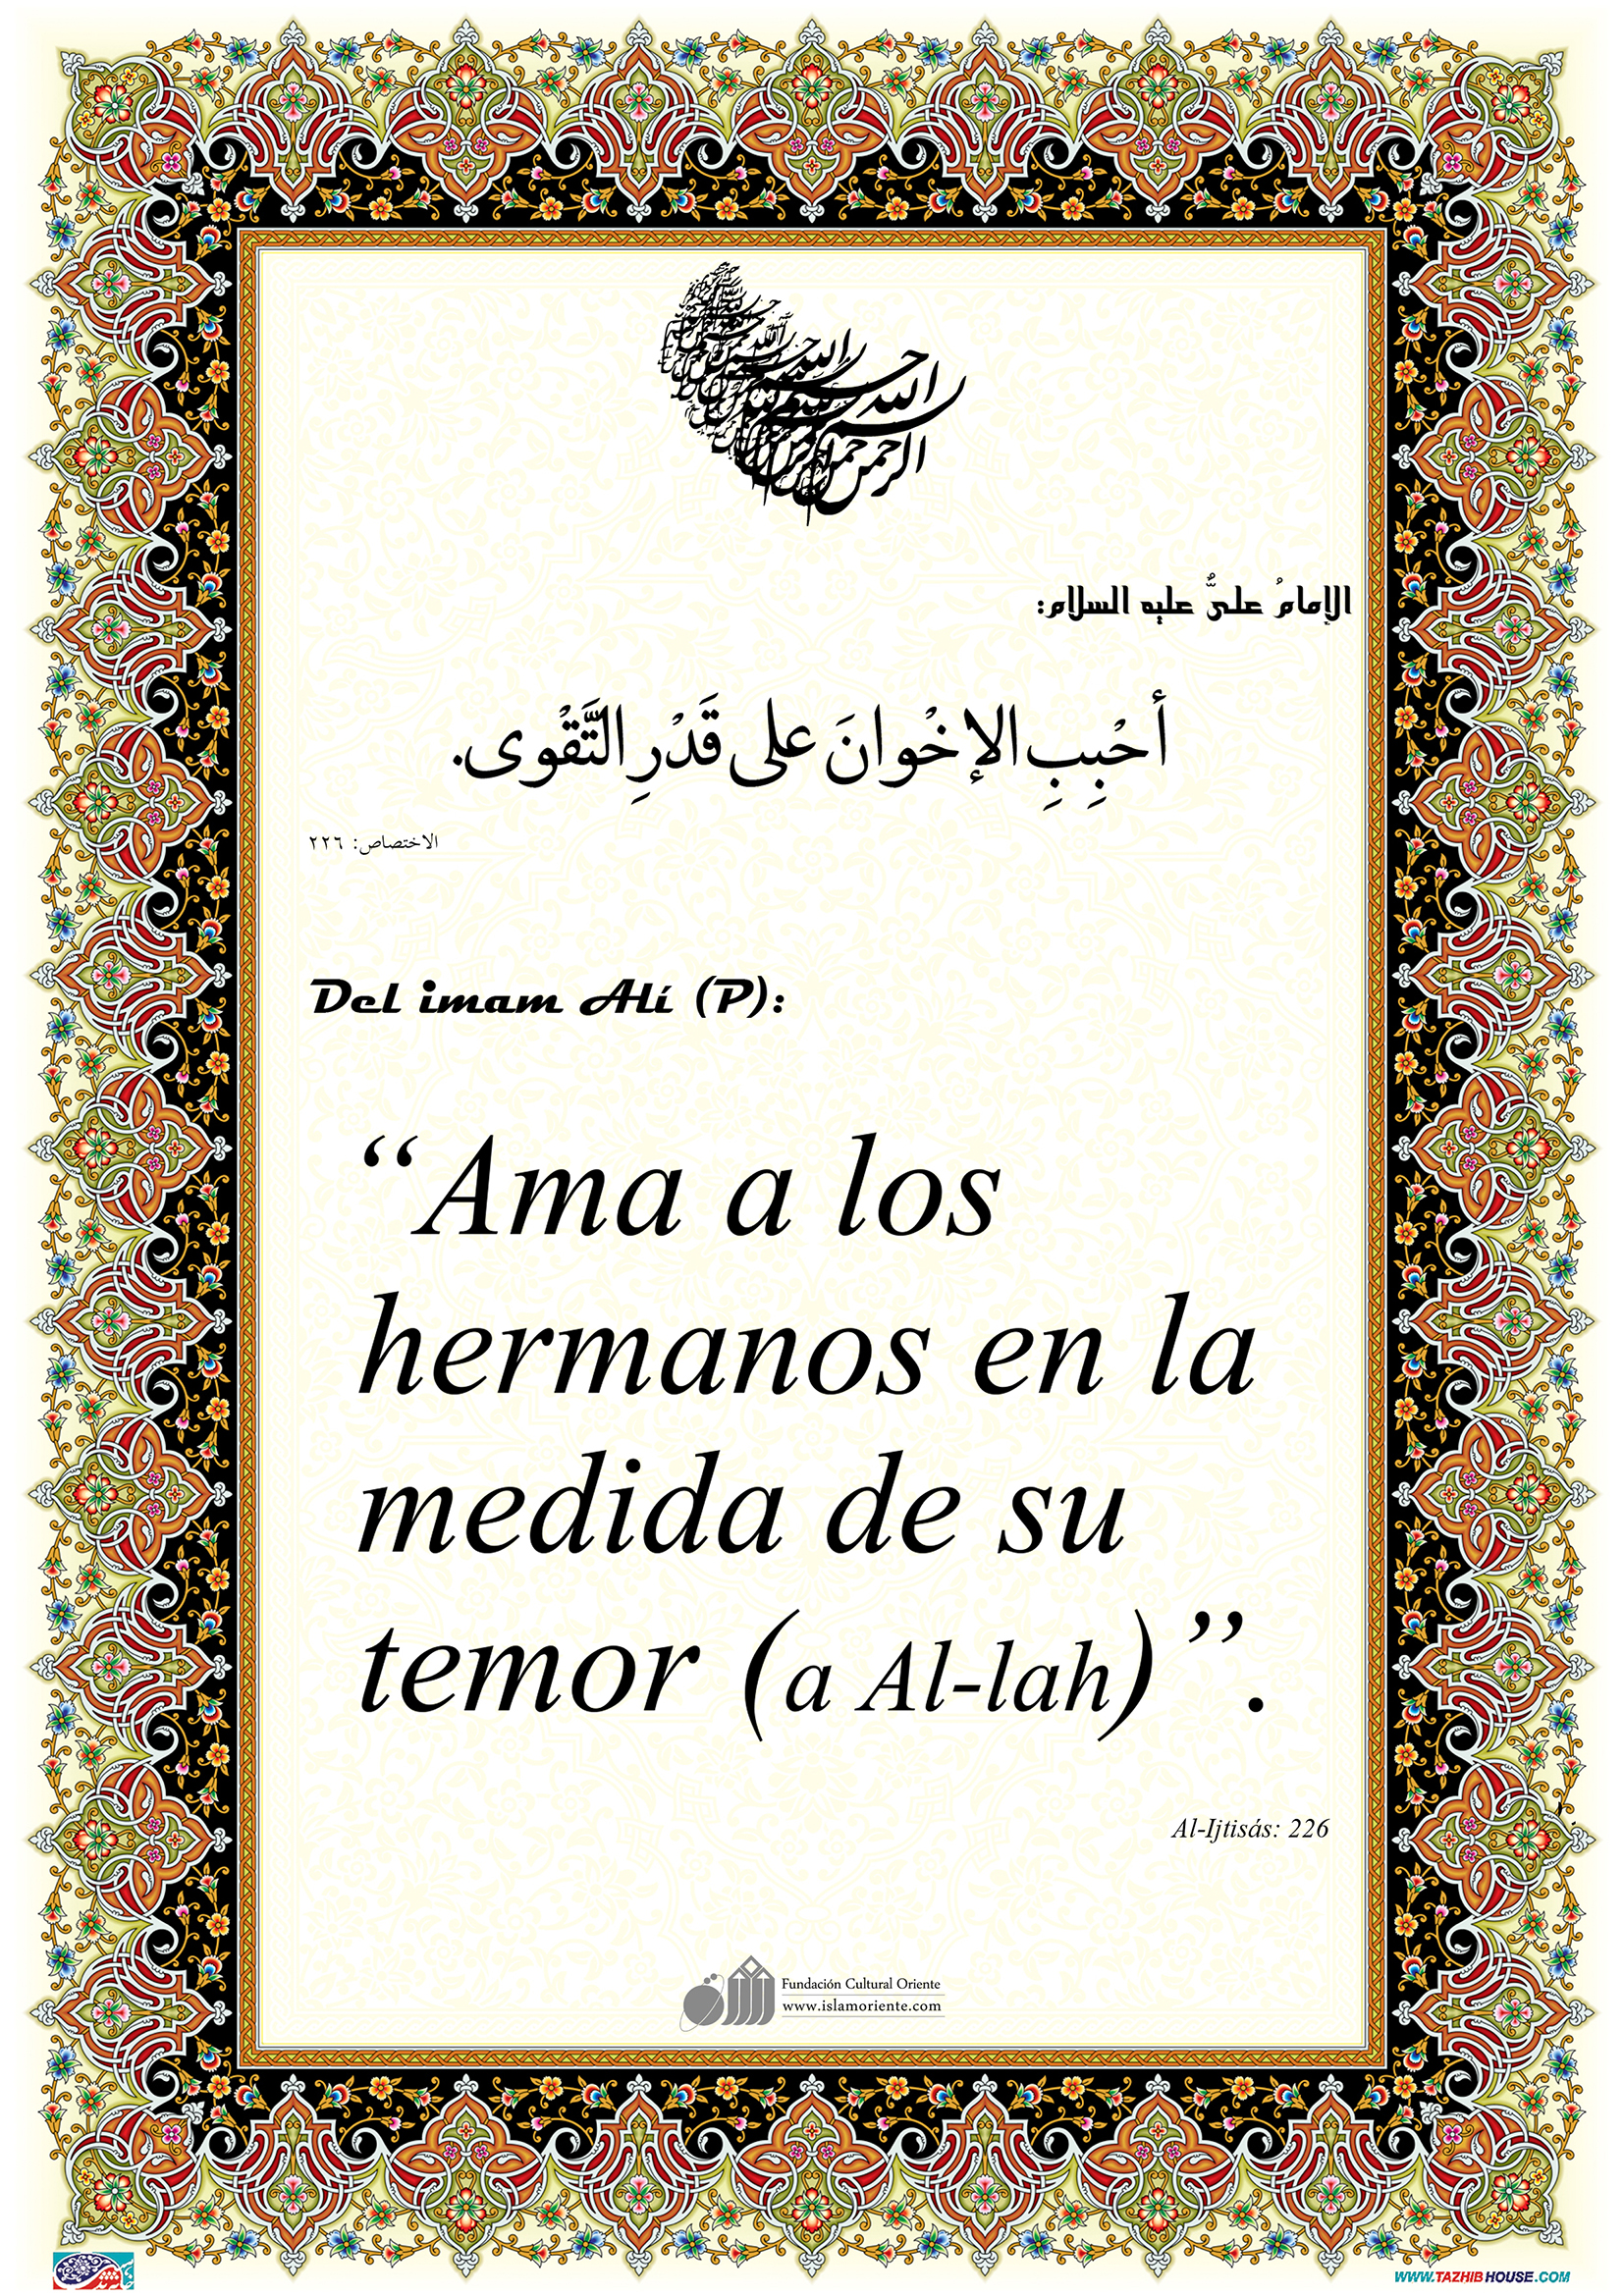 الإمامُ علىٌّ عليه السلام:
أحْبِبِ الإخْوانَ على قَدْرِ التَّقْوى.
الاختصاص: ٢٢٦
Del imam Alí (P):
“Ama a los
hermanos en la
medida de su
temor (a Al-lah)”.
Al-Ijtisás: 226
Fundación Cultural Oriente
www.islamoriente.com
WWW.TAZHIBHOUSE.COM